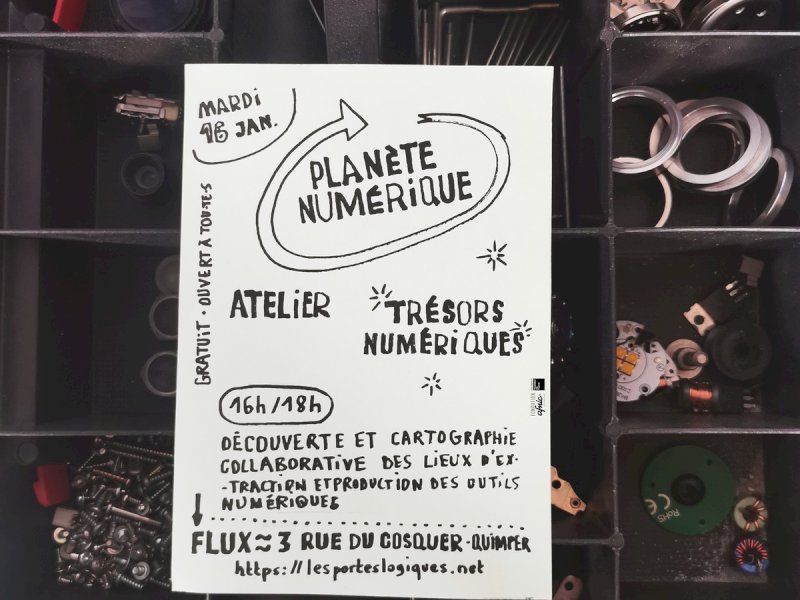 MARDi
16 JAN.
PLANÈTE
NUMÉRiQUE
GRATUiT · OUVERT À TOU·TE·S
ATELiER
TRÉSORS
NUMÉRiQUES
16h/18h
DÉCOUVERTE ET CARTOGRAPHiE
COLLABORATIVE DES LiEUX D'EX-
-TRACTiON ET PRODUCTiON DES OUTiLS
NUMÉRiQUES
FLUX ≈ 3 RUE DU COSQUER · QUiMPER
https://lesporteslogiques.net
afnic
RoHS
CE